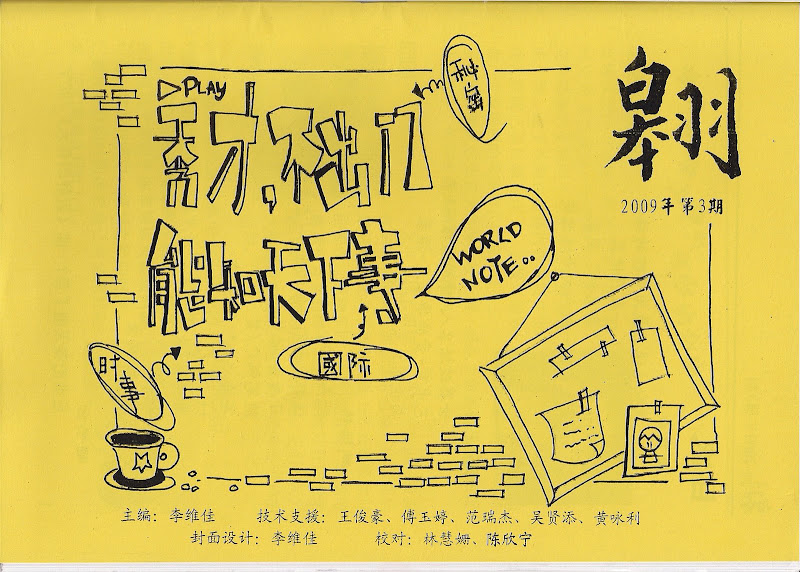 PLAY
秀才,不出门
翱
2009年第3期
能知天下事
WORLD
NOTE..
国际
时事
主编：李维佳 技术支援：王俊豪、傅玉婷、范瑞杰、吴贤添、黄咏利
封面设计：李维佳 校对：林慧姗、陈欣宁